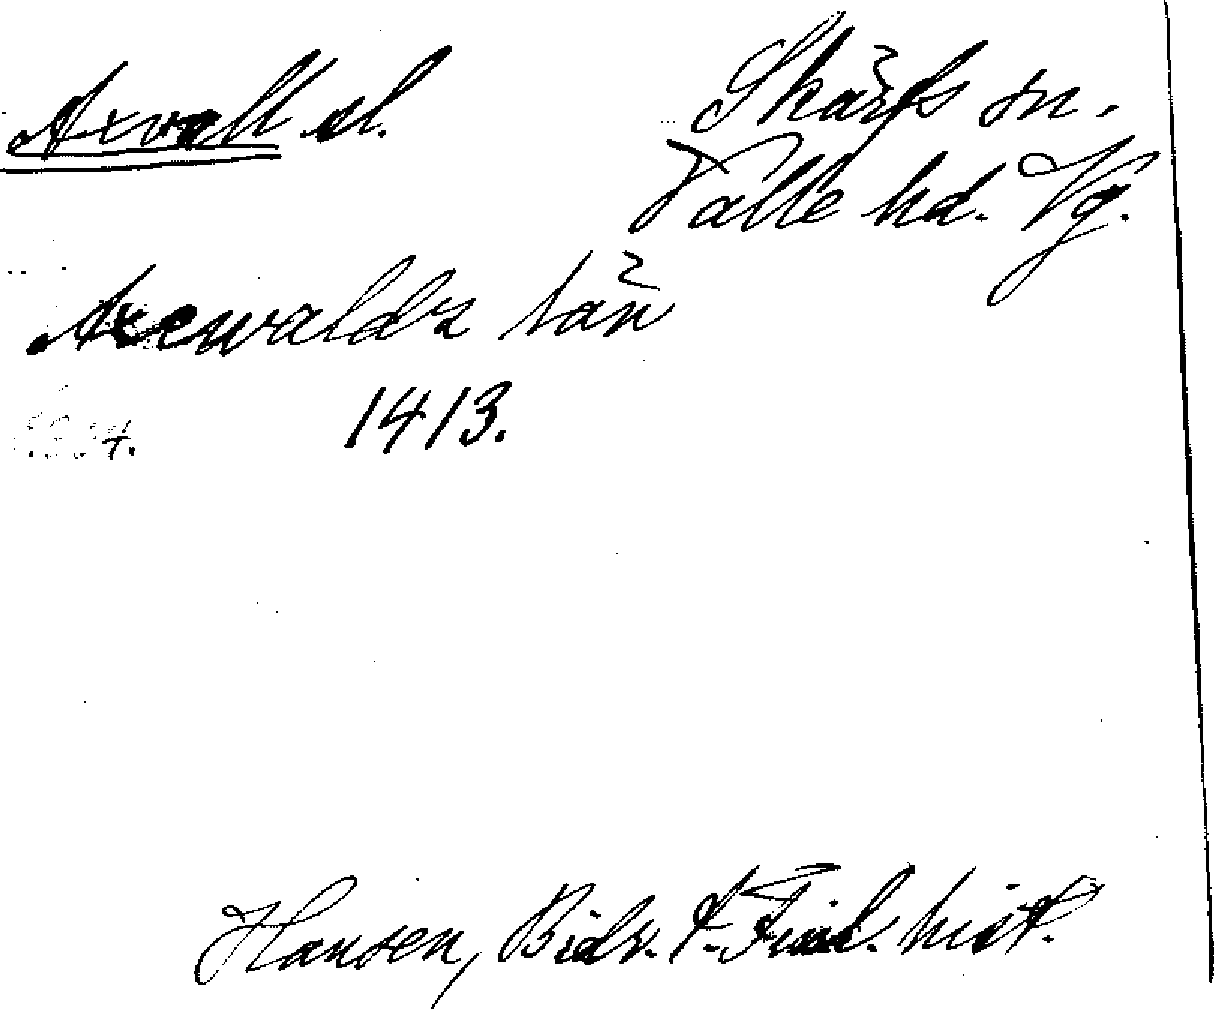 Axvall sl.
Skärfs sn.
Valle hd. Vg.
Axewalda län
1413.
Hausen, Bidr. t. Finl. hist.